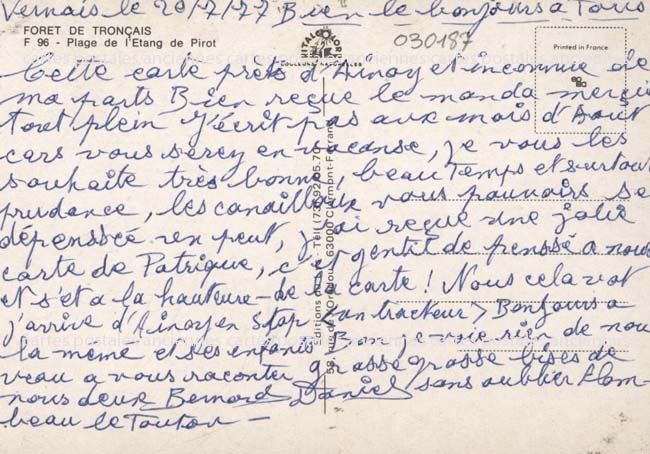 Vernais le 20/7/77 Bien le bonjours a Tous
FORET DE TRONÇAIS
F 96 - Plage de l'Etang de Pirot
030187
Printed in France
Cette carte prèts d'Ainay et inconnue de
ma parts Bien reçue le manda merci
tout plein J'écrit pas aux mois d'Aout
cars vous serez en vacanse, je vous les
souhaite très bonne, beau Temps et surtout
prudance, les canailloux vous pouvoirs se
dépenssée un peut, j'ai reçue une jolie
carte de Patrique, c'est gentit de penssé a nous
et s'et a la hauteure de la carte ! Nous cela vat
j'arrive d'Ainay en stop <un tracteur> Bonjours a
la mème et ses enfants Bon je voie rien de nou
veau a vous raconter grasse grasse bises de
nous deux Bernard Daniel sans oublier Flam
beau le Toutou -
Editions - Tél (73) 92.05.70
58, rue de l'Oradou 63000 Clermont-Ferrand
cartes postales anciennes